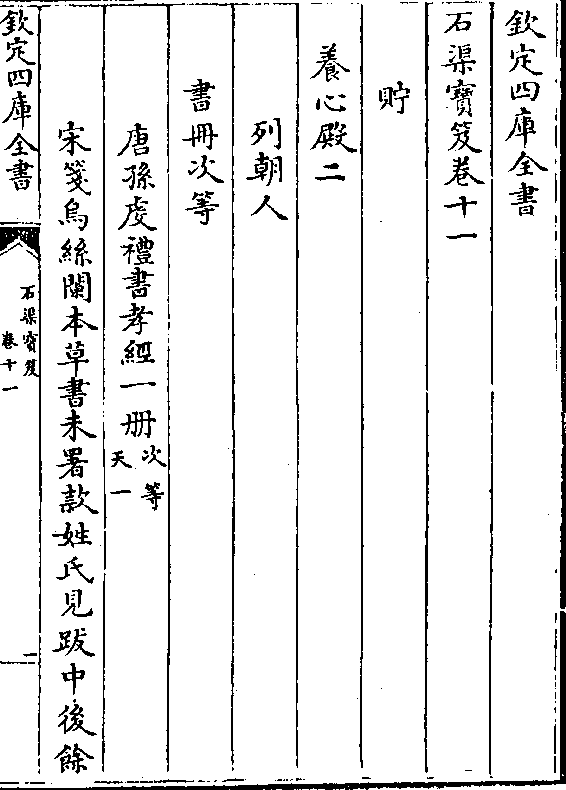 欽定四庫全書
石渠寶笈卷十一
貯
養心殿二
列朝人
書冊次等
唐孫䖍禮書孝經一册次等天一
宋箋烏絲闌本草書未署款姓氏見跋中後餘
欽定四庫全書
石渠寶笈
卷十一
一